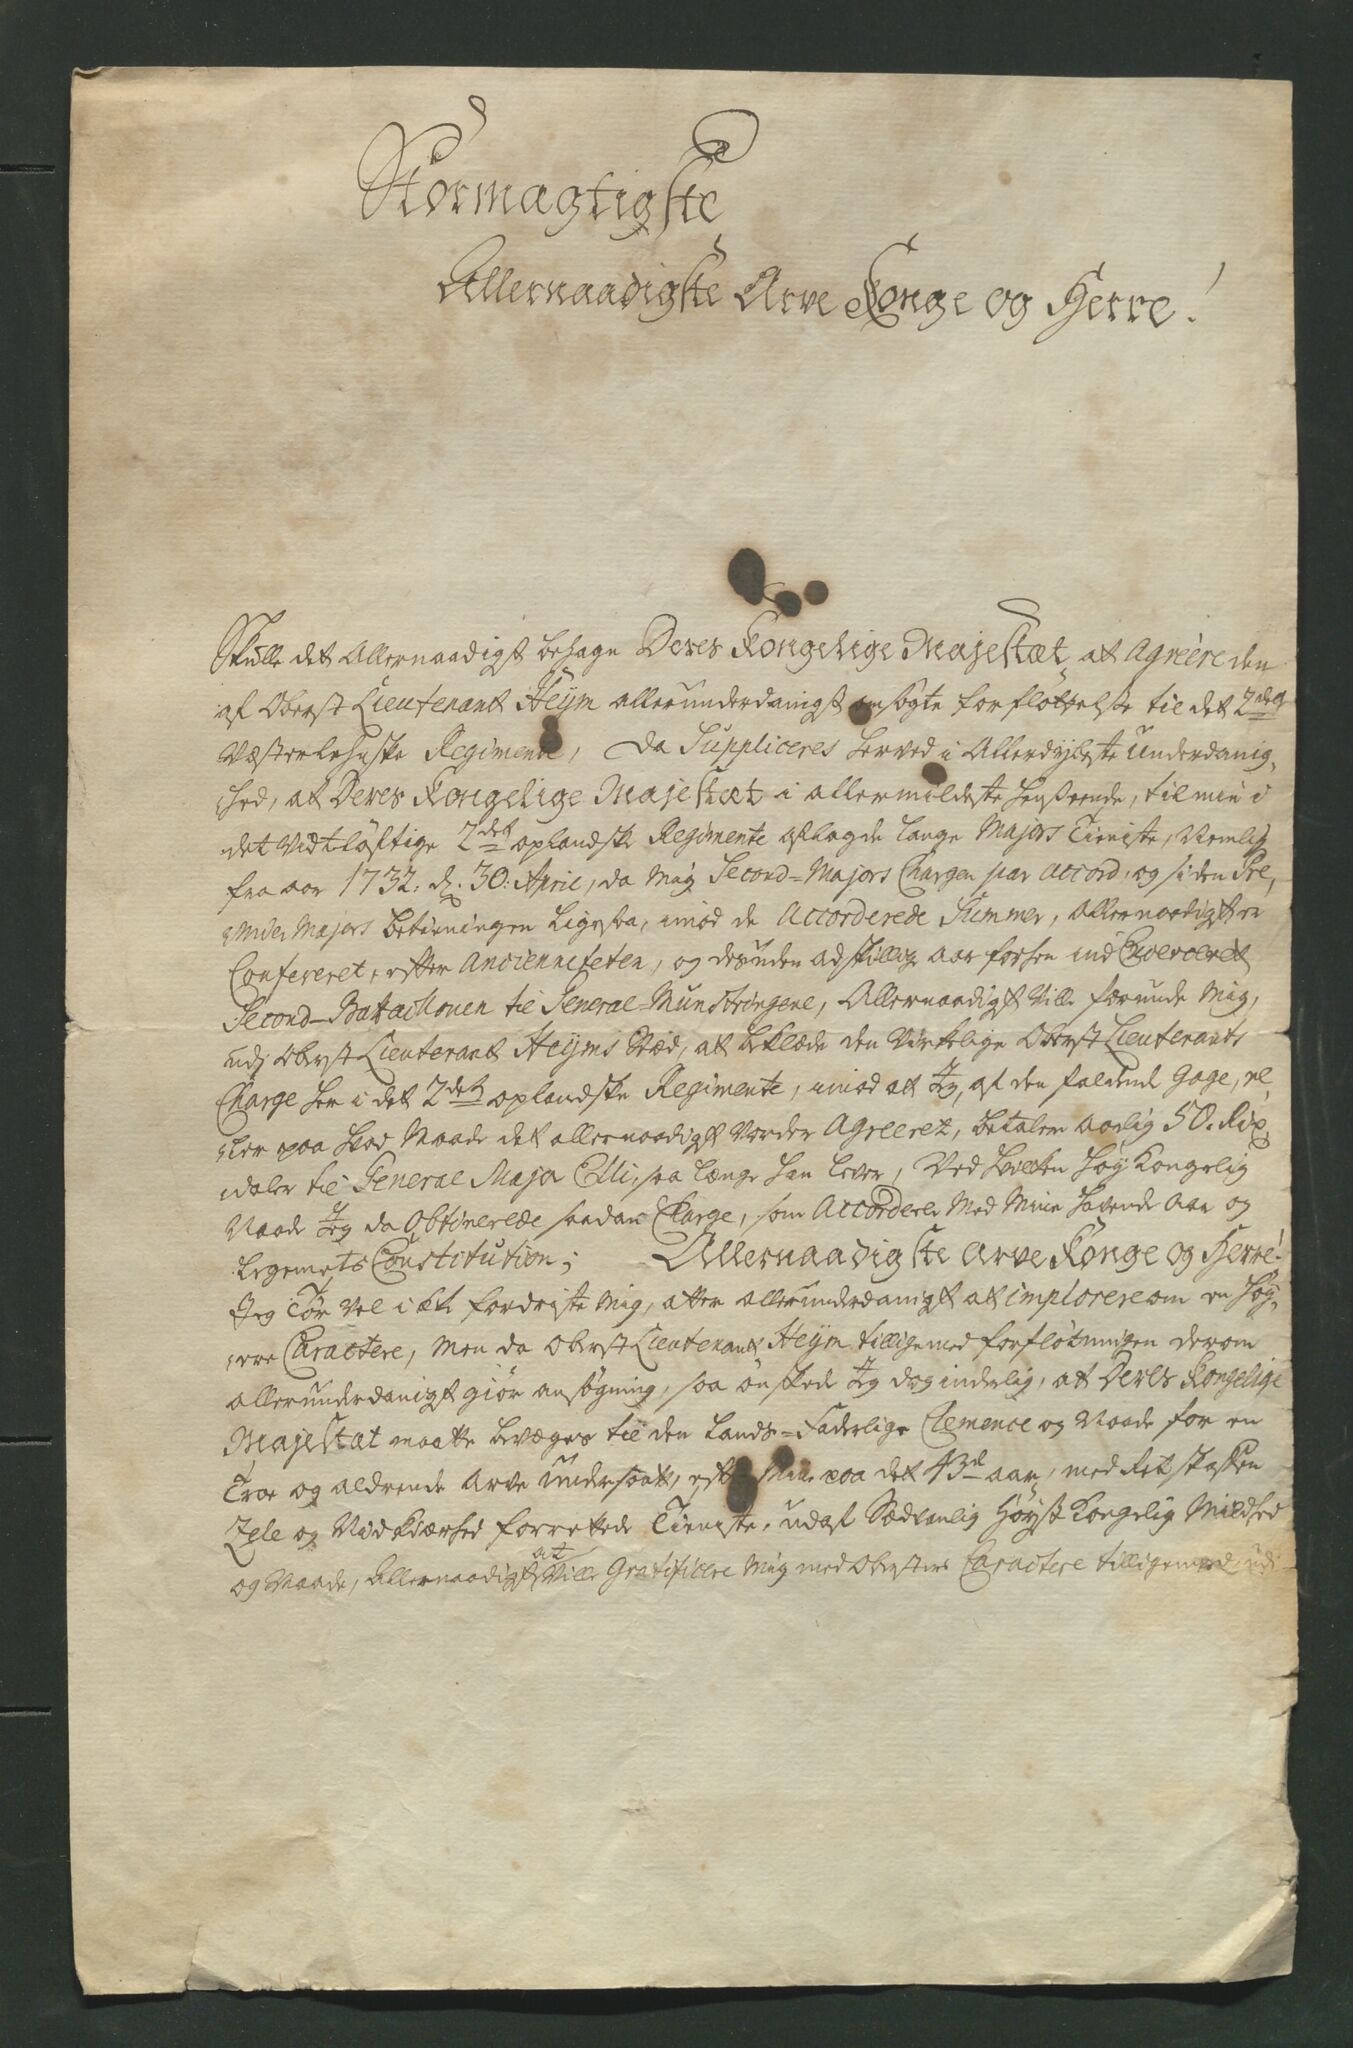 Stormagtigste
Allernaadigste Arve Konge og Herre!
Skulle det Allernaadigst behage Deres Kongelige Majestæt, at Agreere den
af Oberst Lieutenant Heÿm allerunderdanigst ansøgte forfløttelse til det 2det
Vesterlehnske Regimente, Da Suppliceres herved i Allerdybeste Underdanig,
,hed, at Deres Kongelige Majestæt i allermildeste henseende, til min i
det Vidtløftige 2det oplandske Regimente aflagde lange Majors Tieniste, Nemlig
fra aar 1732. d. 30. April, da mig Second-Majors Chargen par accord, og siden Pre,
,mier Majors betieningen ligesaa, imod de Accorderede Summer, Allernaadigst er
Confereret, efter Ancienneteten, og desuden adskillige aar forhen ind Exerceret
Second-Batallionen til General-Munstringene, Allernaadigst Ville forunde Mig,
udi Oberst Lieutenant Heÿms Sted, at beklæde den Virkelige Oberst Lieutenants
Charge her i det 2det oplandske Regimente, imod at Jeg, af den faldende Gage, el,
,ler paa hvad Maade det allernaadigst Vorder Agreeret, betaler aarlig 50. Rix,
,daler til General Major Elli, saa længe han lever, Ved hvilken Høy Kongelig
Naade Jeg da Obtinerede saadan Charge, som Accorderer Med Mine havende Aar og
Legemets Constitution; Allernaadigste Arve Konge og Herre!
Jeg Tør Vel ikke fordriste Mig, atter allerunderdanigst at implorere om en Høy,
,ere Caractere, Men da Oberst Lieutenant Heÿm tilligemed forfløtningen derom
allerunderdanigst giør ansøgning, saa ønskede Jeg dog inderlig, at Deres Kongelige
Majestæt maatte bevæges til den Lands-Faderlige Clemence og Naade for en
Troe og aldrende Arve Undersaat, efter paa det 43de aar, med Retskaffen
Zele og Nidkiærhed forrettede Tieniste, udaf Sædvanlig Høyst Kongelig Mildhed
og Naade, Allernaadigst at Ville Gratificere Mig med Obersters Caractere tilligemed udi